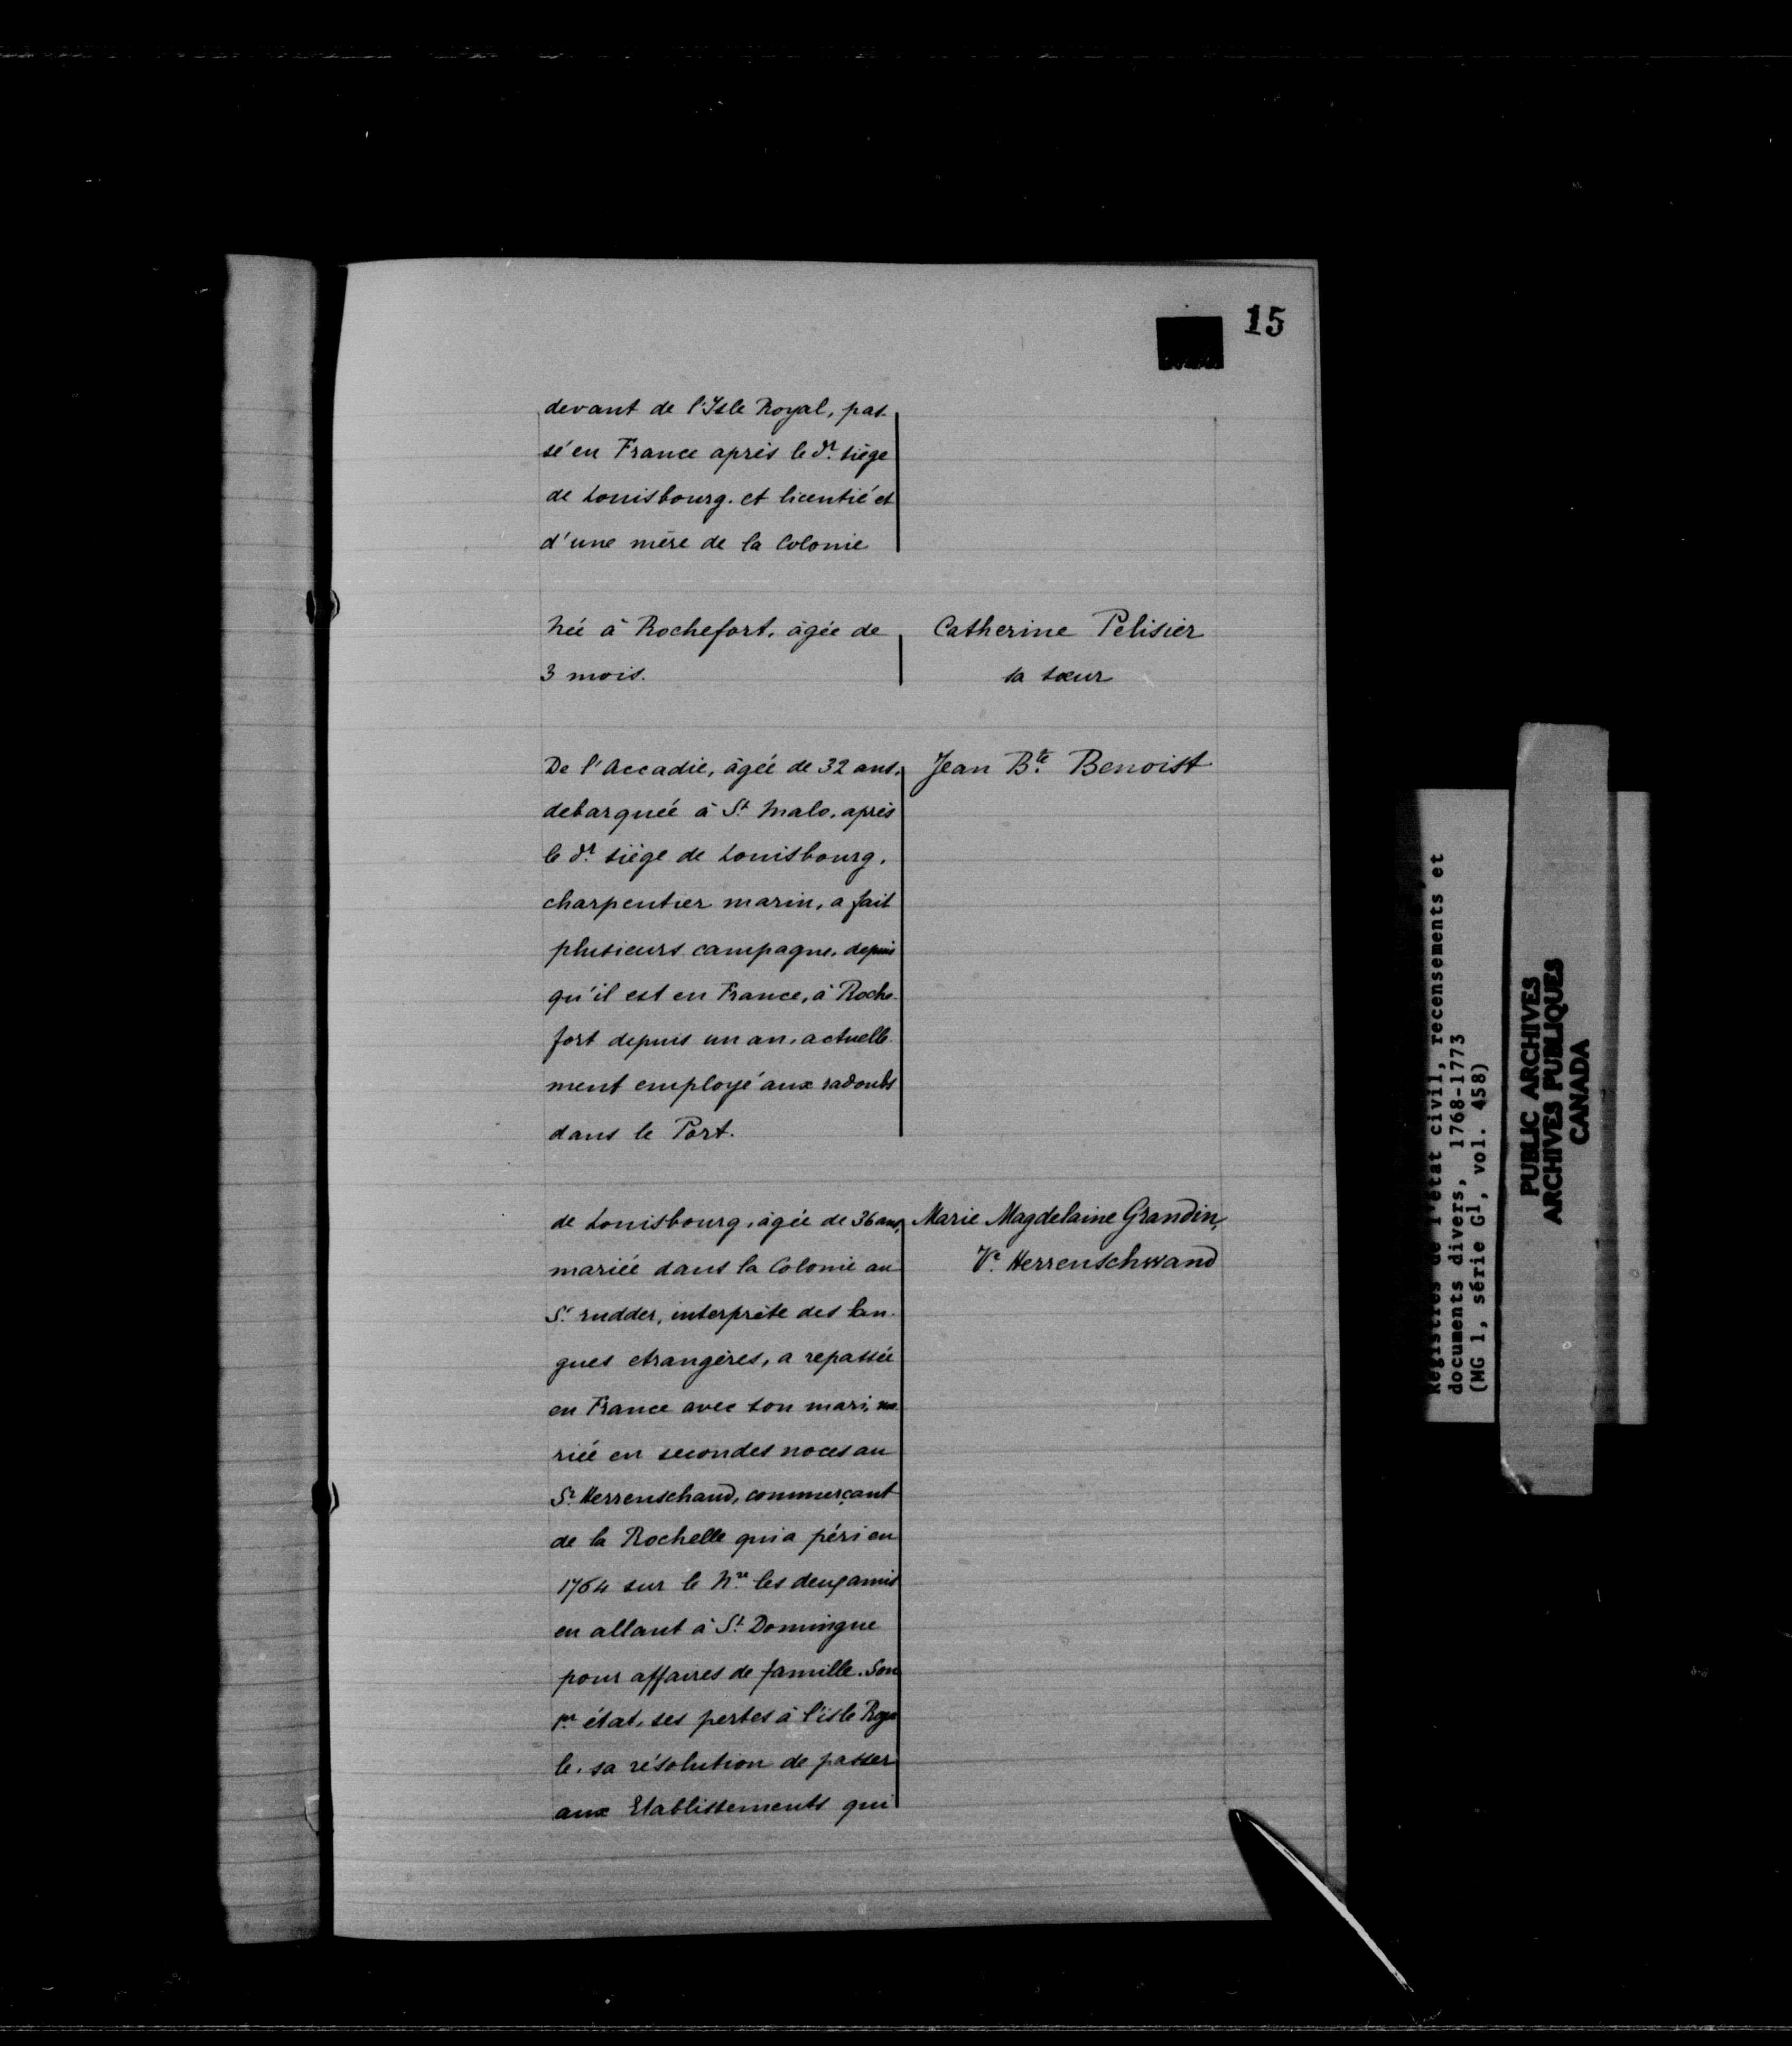 15
devant de l'Isle Royal, pas-
sé en France après le dr. siège
de Louisbourg. et licentié et
d'une mère de la Colonie
Née à Rochefort, âgée de
3 mois.
Catherine Pelisier
sa sœur
De l'Accadie, âgée de 32 ans,
debarquée à St. Malo, après
le dr. siège de Louisbourg,
charpentier marin, a fait
plusieurs campagne, depuis
qu'il est en France, à Roche-
fort depuis un an, actuelle-
ment employé aux radoubs
dans le Port.
Jean Bte. Benoist
de Louisbourg, âgée de 36 ans,
mariée dans la Colonie au
Sr. rudder, interprète des lan-
gues etrangères, a repassée
en France avec son mari, ma-
riée en secondes noces au
Sr. Herrenschand, commerçant
de la Rochelle qui a péri en
1764 sur le Nre. les deux amis
en allant à St. Domingue
pour affaires de famille. Son
pr. état, ses pertes à l'isle Roya-
le, sa résolution de passer
aux Etablissements qui
Marie Magdelaine Grandin,
Ve. Herrenschwand
Registres de l'état civil, recensements et
documents divers, 1768-1773
(MG 1, série G1, vol. 458)
PUBLIC ARCHIVES
ARCHIVES PUBLIQUES
CANADA